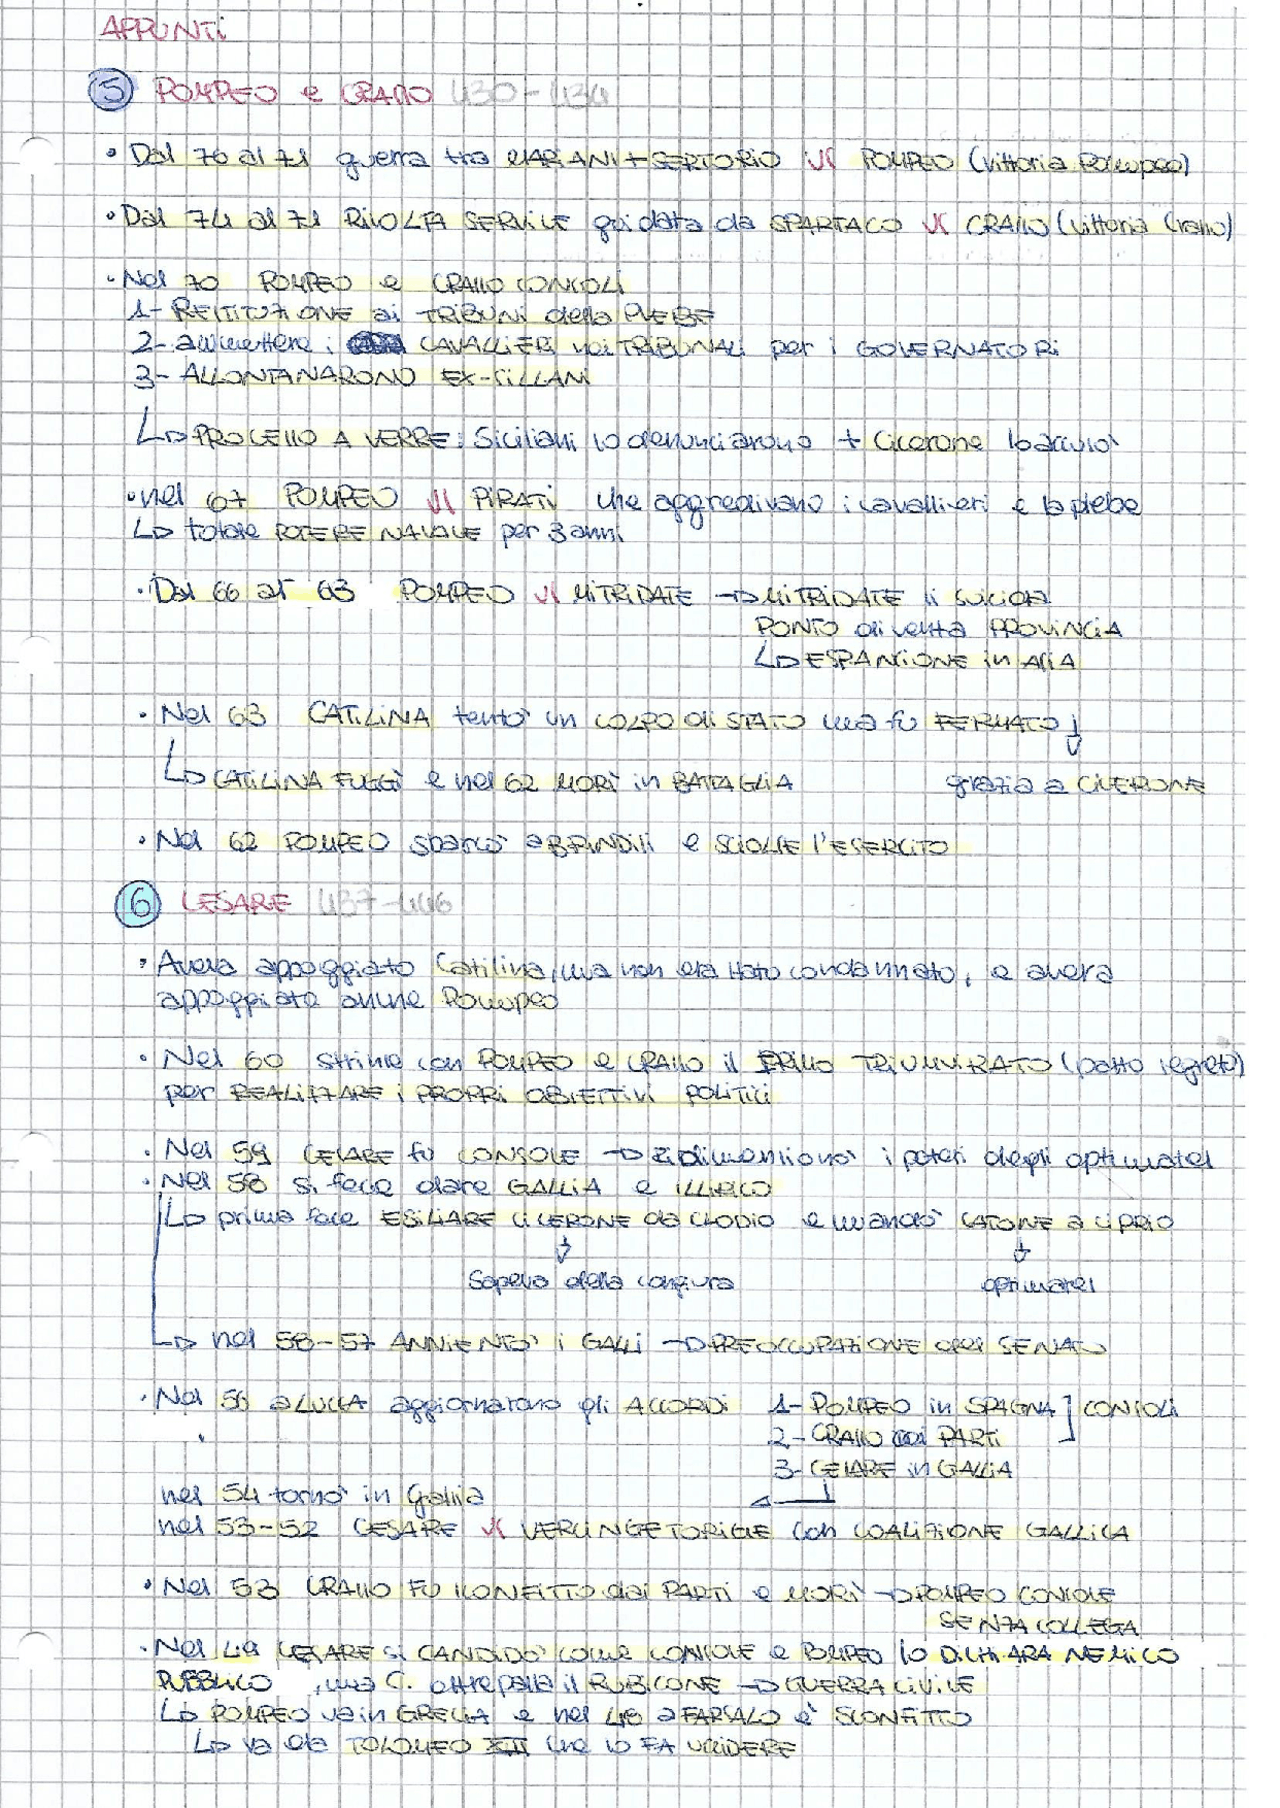 APPUNTI
5 POMPEO e CRASSO 430-434
• Dal 76 al 71 guerra tra MARIANI + SERTORIO VS POMPEO (vittoria Pompeo)
• Dal 74 al 71 RIVOLTA SERVILE guidata da SPARTACO VS CRASSO (vittoria Crasso)
• Nel 70 POMPEO e CRASSO CONSOLI
1- RESTITUZIONE ai TRIBUNI della PLEBE
2- ammettere i CAVALLIERI nei TRIBUNALI per i GOVERNATORI
3- ALLONTANARONO EX-SILLANI
↳ PROCESSO A VERRE: Siciliani lo denunciarono + Cicerone lo accusò
• nel 67 POMPEO VS PIRATI che aggredivano i cavallieri e la plebe
↳ totale POTERE NAVALE per 3 anni
• Dal 66 al 63 POMPEO VS MITRIDATE → MITRIDATE si SUICIDA
PONTO diventa PROVINCIA
↳ ESPANSIONE in ASIA
• Nel 63 CATILINA tentò un COLPO di STATO ma fu FERMATO ↓
↳ CATILINA FUGGÌ e nel 62 MORÌ in BATTAGLIA grazia a CICERONE
• Nel 62 POMPEO sbarcò a BRINDISI e SCIOLSE l'ESERCITO
6 CESARE 437-446
• Aveva appoggiato Catilina, ma non era stato condannato, e aveva
appoggiato anche Pompeo
• Nel 60 strinse con POMPEO e CRASSO il PRIMO TRIUMVIRATO (patto segreto)
per REALIZZARE i PROPRI OBIETTIVI POLITICI
• Nel 59 CESARE fu CONSOLE → ridimensionò i poteri degli optimates
• Nel 58 si fece dare GALLIA e ILLIRICO
↳ prima fece ESILIARE CICERONE da CLODIO e mandò CATONE a CIPRO
↓ ↓
Sapeva della congiura optimates
↳ nel 58-57 ANNIENTÒ i GALLI → PREOCCUPAZIONE del SENATO
• Nel 56 a LUCCA aggiornarono gli ACCORDI 1- POMPEO in SPAGNA ] CONSOLI
2- CRASSO dai PARTI
3- CESARE in GALLIA
nel 54 tornò in Gallia
nel 53-52 CESARE VS VERCINGETORIGE con COALIZIONE GALLICA
• Nel 53 CRASSO FU SCONFITTO dai PARTI e MORÌ → POMPEO CONSOLE
SENZA COLLEGA
• Nel 49 CESARE si CANDIDÒ come CONSOLE e POMPEO lo DICHIARA NEMICO
PUBBLICO, ma C. oltrepassa il RUBICONE → GUERRA CIVILE
↳ POMPEO va in GRECIA e nel 48 a FARSALO è SCONFITTO
↳ va da TOLOMEO XIII che lo FA UCCIDERE